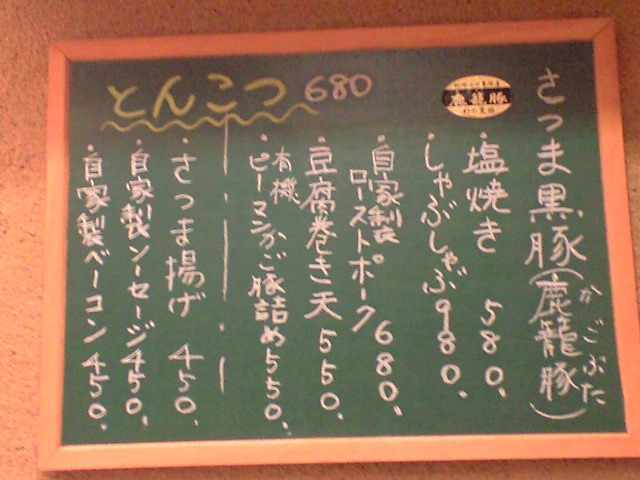 さつま黒豚(鹿籠豚)
かごぶた
鹿籠豚
幻の黒豚
・塩焼き 580、
・しゃぶしゃぶ 980、
・自家製
ローストポーク 680、
・豆腐巻き天 550、
・有機
ピーマンかご豚詰め 550、
とんこつ 680
・さつま揚げ 450、
・自家製ソーセージ 450、
・自家製ベーコン 450、